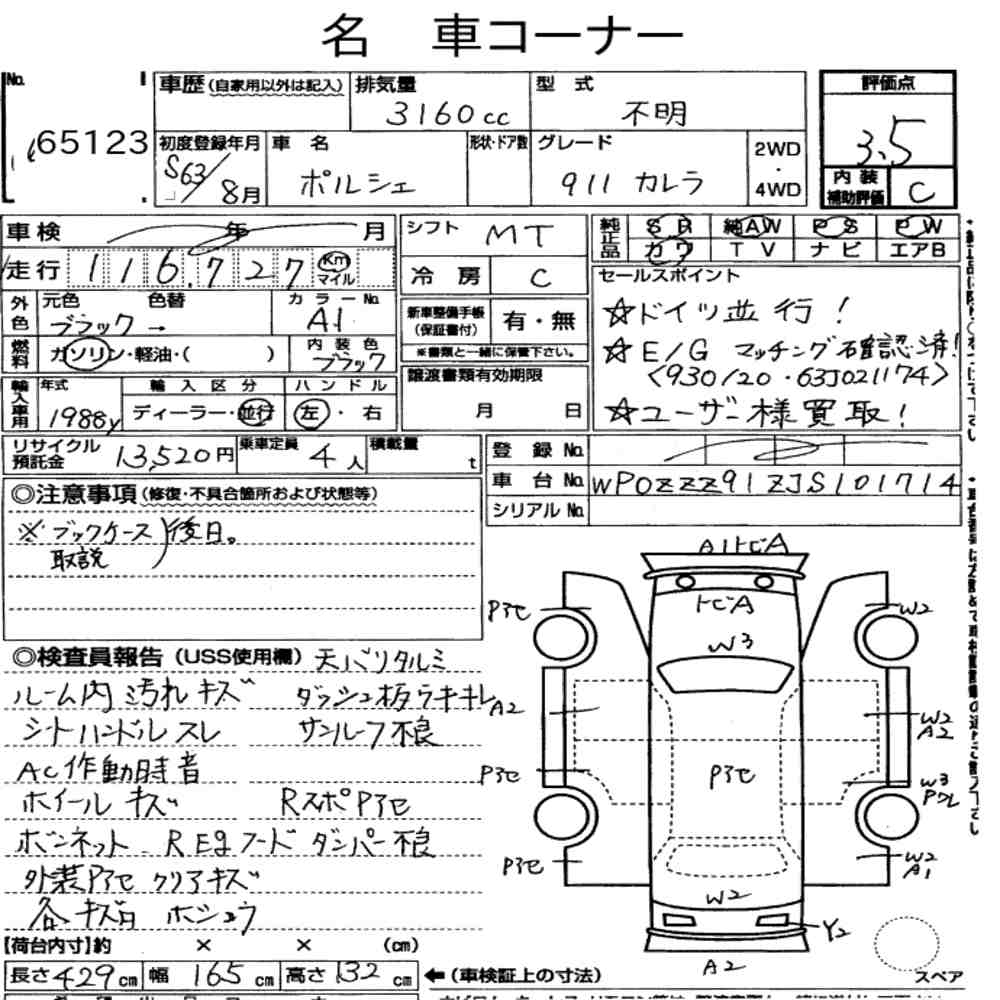 名 車コーナー
No. 65123
車歴(自家用以外は記入) 排気量 3160cc 型式 不明 評価点 3.5
初度登録年月 S63/8月 車名 ポルシェ 形状・ドア数 グレード 911 カレラ 2WD・4WD 内装補助評価 C
車検 年 月 シフト MT 純正品 SR 純AW PS PW
走行 116,727 Km マイル 冷房 C カワ TV ナビ エアB
外色 元色 ブラック→ 色替 カラーNo. A1
セールスポイント
☆ドイツ並行!
☆E/G マッチング確認済!
<930/20・63J021174>
☆ユーザー様買取!
燃料 ガソリン・軽油・( ) 内装色 ブラック
新車整備手帳(保証書付) 有・無
※書類と一緒に保管下さい。
輸入車用 年式 1988y 輸入区分 ディーラー・並行 ハンドル 左・右
譲渡書類有効期限 月 日
リサイクル預託金 13,520円 乗車定員 4人 積載量 t
登録No.
車台No. WP0ZZZ91ZJS101714
シリアルNo.
◎注意事項(修復・不具合箇所および状態等)
※ブックケース 取説)後日。
◎検査員報告(USS使用欄) 天バリタルミ
ルーム内 汚れ キズ ダッシュ板ラキキレ
シートハンドルスレ サンルーフ不良
AC作動時音
ホイール キズ RスポPアセ
ボンネット REgフード ダンパー不良
外装Pアセ クリアキズ
各キズ有 ホシュウ
A1トビA
トビA
W3
Pアセ
W2
A2
W2
A2
Pアセ
Pアセ
W3
Pアセ
W2
A1
W2
Y2
A2
スペア
【荷台内寸】約 × × (cm)
長さ429cm 幅165cm 高さ132cm ←(車検証上の寸法)